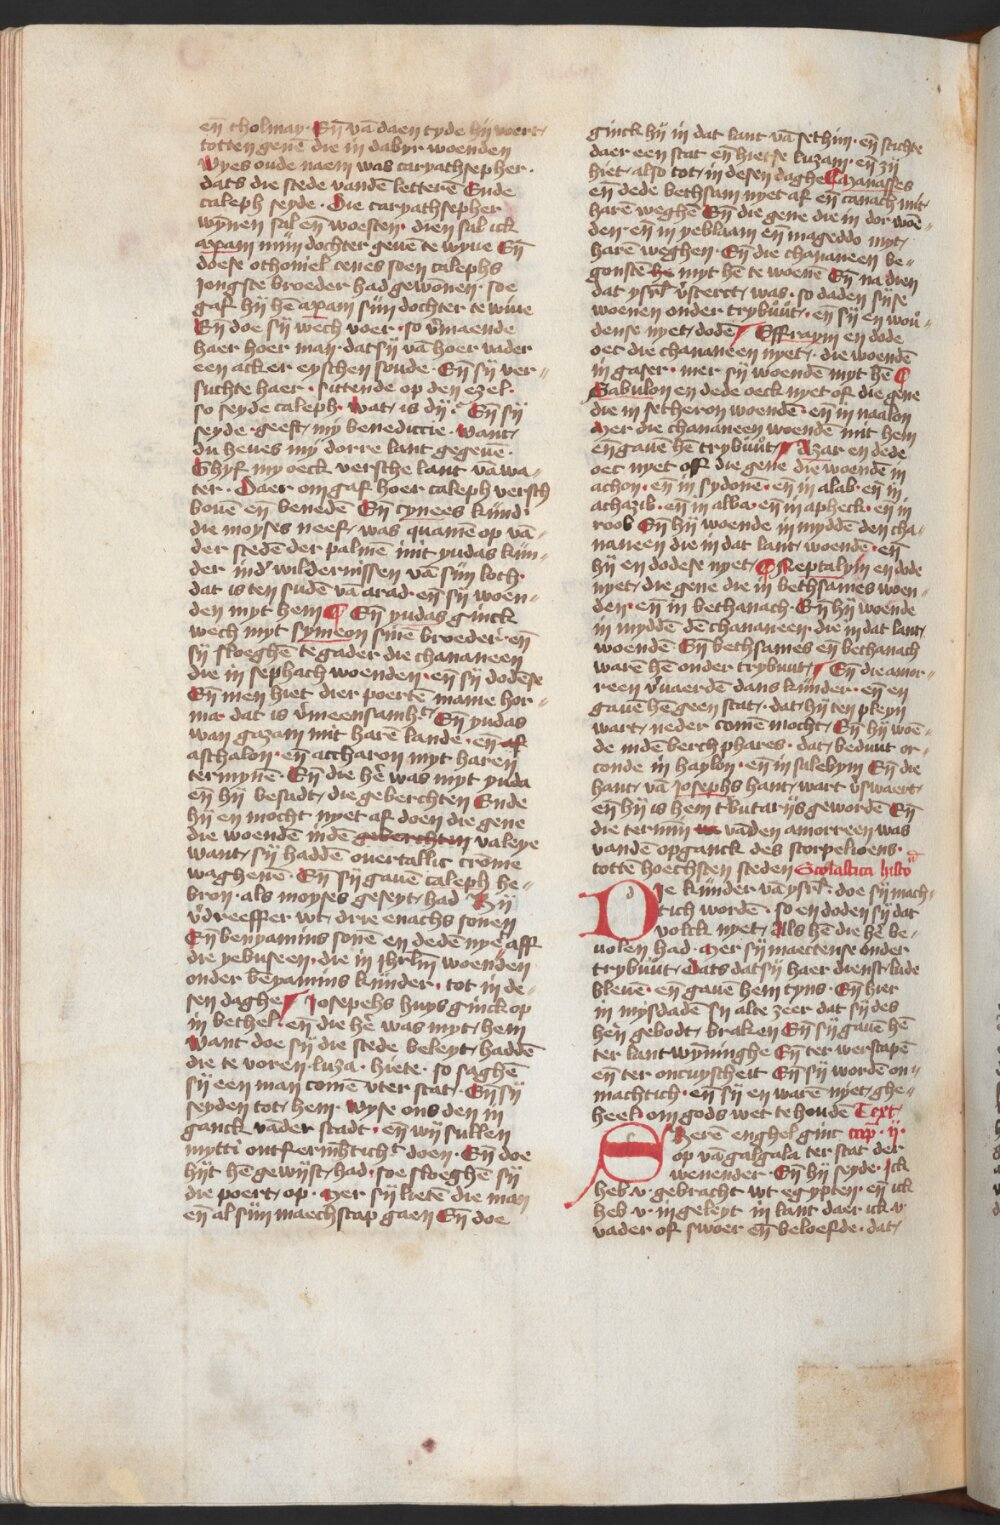 en̄ tholmay · En̄ vā daen tyde hij voert
totten genē die in dabyr woenden
Wyes oude naem was caryathsepher ·
dats die stede vandē letterē Ende
caleph seyde · Die caryathsepher
wȳnen sal en̄ woesten · dien sal ick
axam mijn dochter gevē te wyue En̄
doese othoniel cenes soen calephs
jongste broeder had gewonen · soe
gaf hij hē axam sijn dochter te wiue
En̄ doe sij wech voer · so v̄maende
haer hoer man · dat sij vā hoer vader
een acker eyschen soude · En̄ sij ver-
suchte haer · sittende op den ezel ·
so seyde caleph · Wat is dij · En̄ sij
seyde · geeft my benedictie · Want
du heues mȳ dorre lant gegevē ·
Ghyf my oeck versche lant vā wa-
ter · Daer om gaf hoer caleph versch
bouē en̄ benedē En̄ cynees kind̄
die moyses neef was quamē op vā-
der stedē der palmē mit yudas kijn-
der ind̄ wildernissen vā sijn loth ·
dat is ten sudē vā arad · en̄ sij woen-
den myt hem En̄ yudas ginck
wech myt symeon sinē broeder · en̄
sij sloeghē te gader die chananeen
die in sephach woenden · en̄ sij dodēse
En̄ men hiet dier poertē name hor-
ma · dat is v̄meensamh̄t En̄ yudas
wan gazam mit harē lande · en̄ af
asthalon · en̄ accharon myt haren
termynē · En̄ die hē was myt yuda
en̄ hij besadt die geberchten Ende
hij en mocht nyet af doen die gene
die woendē indē geberchten valeye
want sij haddē ouertallic crome
waghenē · En̄ sij gauē caleph he-
bron · als moyses geseyt had En̄
v̄dreeffer wt drie enachs sonen
En̄ benyamins sonē en dedē nyet aff
die yebuseen · die in jhrl̄m woenden
onder benyamins kijnder · tot in de-
sen daghe Josephs huys ginck op
in bethel · en̄ die hē was myt hem
Want doe sij die stede beleyt haddē
die te voren luza · hiete · so saghē
sij een man comē vter stat · En̄ sij
seyden tot hem · Wyse ons den in
ganck vāder stadt · en̄ wij sullen
mytti ontfermh̄tich̄t doen · En̄ doe
hijt hē gewijst had · soe sloeghē sij
die poert op · Mer sij lietē die man
en̄ al sijn maechscap gaen En̄ doe
ginck hij in dat lant vā sethim · en̄ stichte
daer een stat en̄ hietse luzam · en̄ zij
hiet also tot in desen daghe Manasses
en̄ dede bethsam nyet af en̄ tanach mit
harē weghē En̄ die gene die in dor woē-
den · en̄ in yeblaam en̄ mageddo myt
harē weghen · En̄ die chananeen be-
gonste he myt hē te woenē En̄ na dien
dat ysrl̄ v̄sterct was · so daden sijse
woenen onder trybuut · en̄ sij en wou-
dense nyet dodē Effraym en dode
oec die chananeen nyet · die woendē
in gaser · mer sij woendē myt hē
Sabulon en dede oeck nyet of die gene
die in setheron woendē · en̄ in naalon
Mer die chananeen woendē mit hem
en̄ gauē hē trybuut Azar en dede
oec nyet off die gene die woendē in
achon · en̄ in sydone · en̄ in alab · en̄ in
achazib · en̄ in alba · en̄ in apheck · en̄ in
roob En̄ hij woende in myddē den cha-
naneen die in dat lant woendē · en̄
hij en dodese nyet Neptalym en dode
nyet die gene die in bethsames woen-
den · en̄ in bethanach · En̄ hij woende
in myddē dē chananeen · die in dat lant
woendē En̄ bethsames en̄ bethanach
warē hē onder trybuut En̄ die amor-
reen v̄uaerdē dans kijnder · en̄ en
gauē hē geen stat · dat hij ten pleyn
wart neder comē mocht En̄ hij woē-
de indē berch phares · dat beduut or-
conde in haylon · en̄ in salebym En̄ die
hant vā josephs hant wart v̄swaert
en̄ hij is hem t̄butarijs gewordē En̄
die termijn vāden amorreen was
vandē opganck des scorpelioens ·
tottē hoechsten steden Scolastica histō
Die kijnder vā ysrl̄ · doe sij mach-
tich wordē · so en doden sij dat
volck nyet Als hē die hē be-
uolen had · Mer sij maectense onder
trybuut Dats dat sij haer dienstlude
bleuē · en̄ gauē hem tyns · En̄ hier
in mysdadē sij alte zeer dat sij des
hē gebodt braken En̄ sij gauē hē
ter lantwȳninghe En̄ ter werscapē
en̄ ter oncuyscheit En̄ sij wordē on-
machtich · en̄ sij en warē nyet ghe-
heel · om gods wet te houdē Text
S herē enghel ginc cap̄ · ij ·
op vā galgala ter stat der
wenender · En̄ hij seyde · Ick
heb v · gebracht wt egypten · en̄ ick
heb v · in geleyt in lant daer ick v
vader of swoer en̄ beloefde · dat